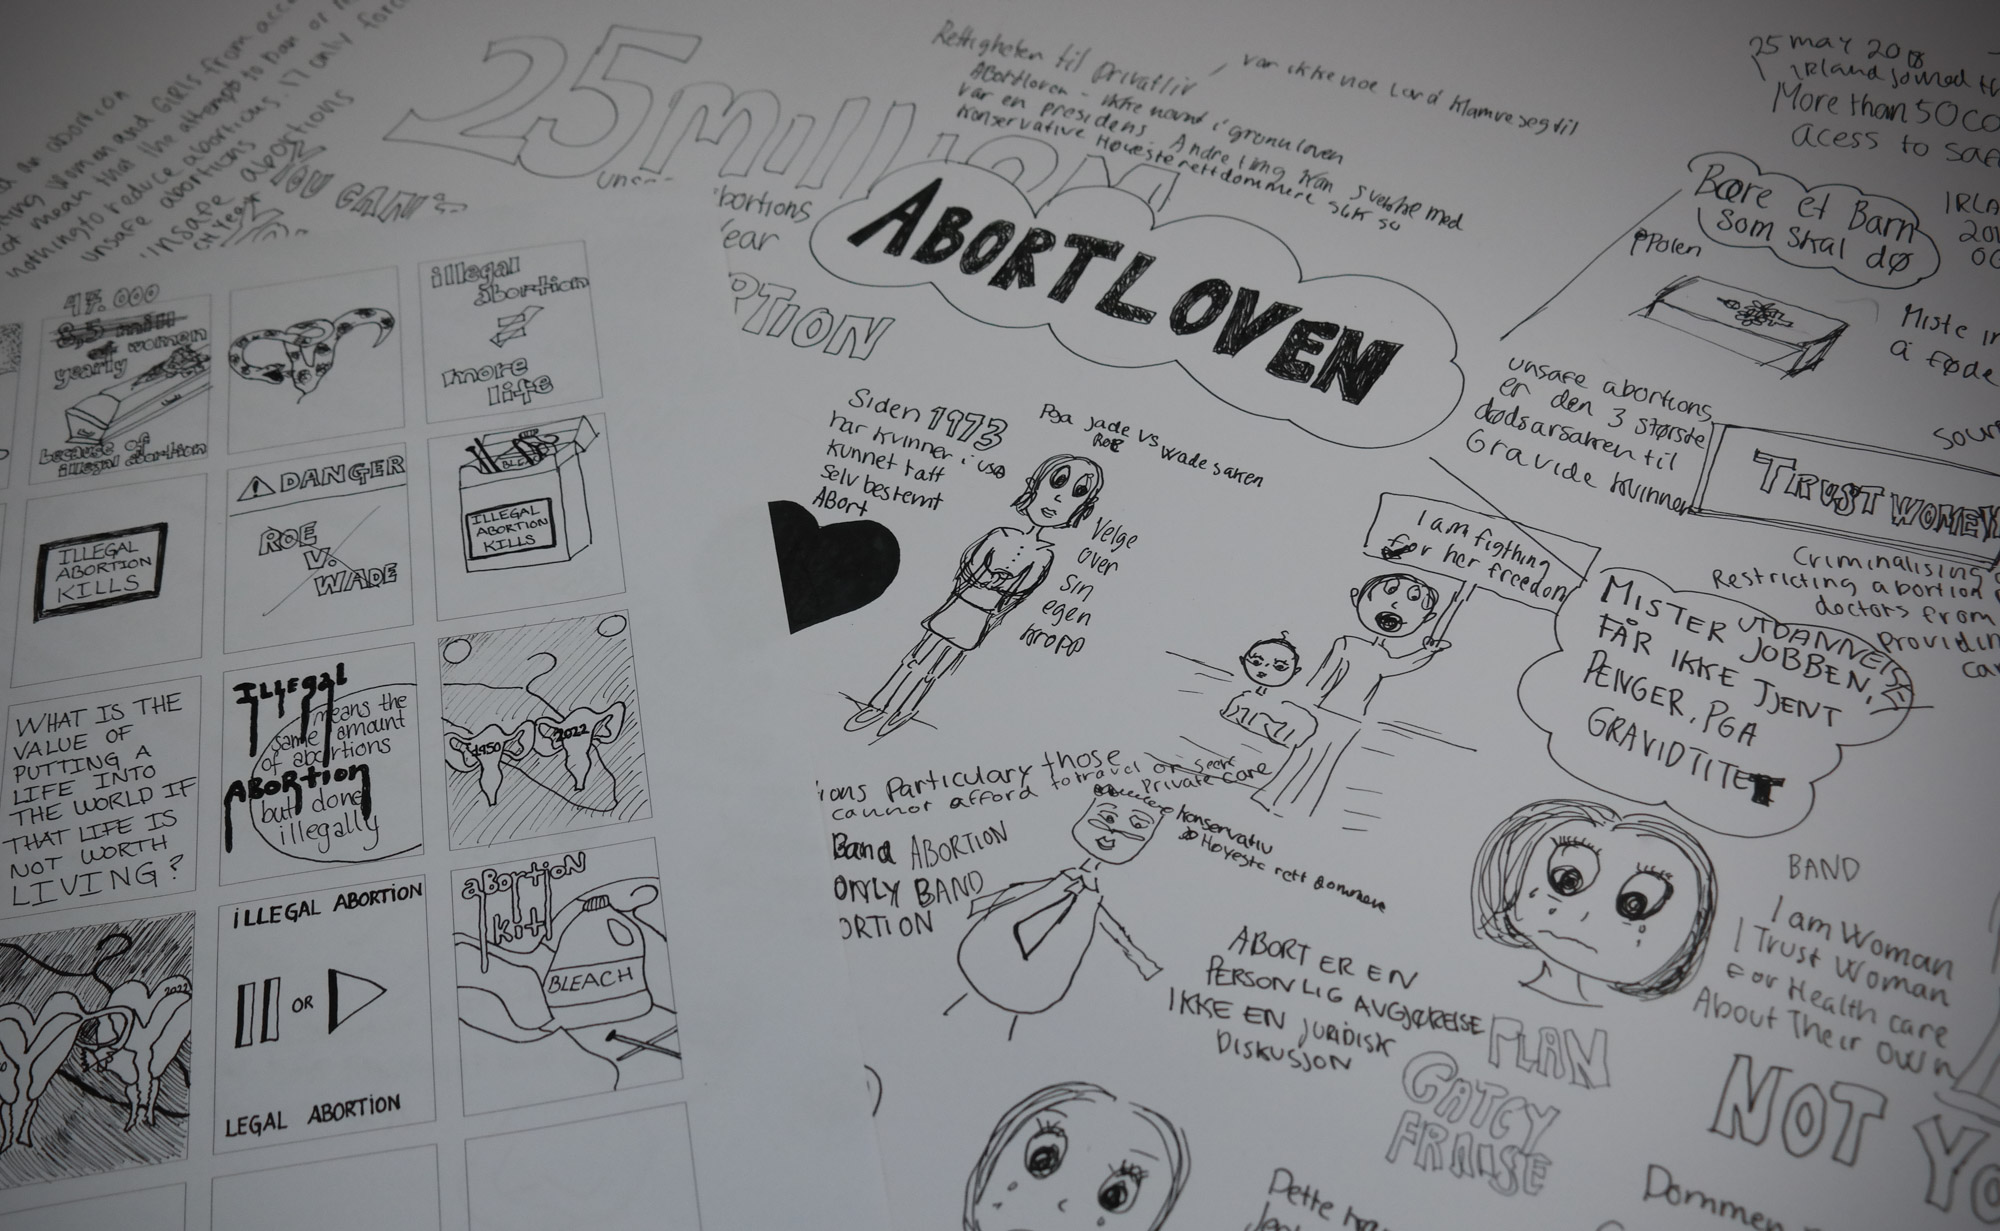 an abortion
women and GIRLS from
not mean that the attempt to ban or
nothing to reduce abortions. 17 only
unsafe abortions
unsafe abortions
YOU
25 million
bortions
ear
PTION
47.000
8,5 mill
of women
yearly
because of
illegal abortion
illegal
abortion
≠
more
life
ILLEGAL
ABORTION
KILLS
DANGER
ROE
V.
WADE
BLEACH
ILLEGAL
ABORTION
KILLS
WHAT IS THE
VALUE OF
PUTTING A
LIFE INTO
THE WORLD IF
THAT LIFE IS
NOT WORTH
LIVING?
ILLEgal
means the
same amount
of abortions
ABORtion
but done
illegally
1950
2022
2022
iLLEGAL ABORTION
OR
LEGAL ABORTION
aBortioN
kit!
BLEACH
Rettigheten til Privatliv
var ikke noe Lord Klamre seg til
Abortloven - ikke nevnt i grunnloven
var en presidens. Andre ting kan svekke med
konservative Høyesterettdommere slik
ABORTLOVEN
Siden 1973
har kvinner i USA
kunnet tatt
selv bestemt
Abort
Pga Jade vs wade saken
ROE
Velge
over
sin
egen
kropp
I am figthing
for her freedom
ions Particulary those
cannot afford to travel or seek
Private care
Band ABORTION
ONLY BAND
ORTION
Konservativ
Høyeste rett dommere
ABORT ER EN
PERSONLIG AVGJØRELSE
IKKE EN JURIDISK
DISKUSJON
PLAN
CATCY
FRAISE
25 may 2018
Irland joined th
More than 50 co
acess to saf
Bære et Barn
som skal dø
i Polen
IRLA
Miste
å føde
unsafe abortions
er den 3 største
dødsårsaken til
Gravide kvinner
TRUST WOMEN
Criminalising
Restricting abortion
doctors from
Providin
car
MISTER UTDANNELSE
FÅR IKKE JOBBEN,
TJENT
PENGER, PGA
GRAVIDTITET
BAND
I am Woman
I Trust Woman
For Health care
About Their own
NOT YO
Dette
Dommen